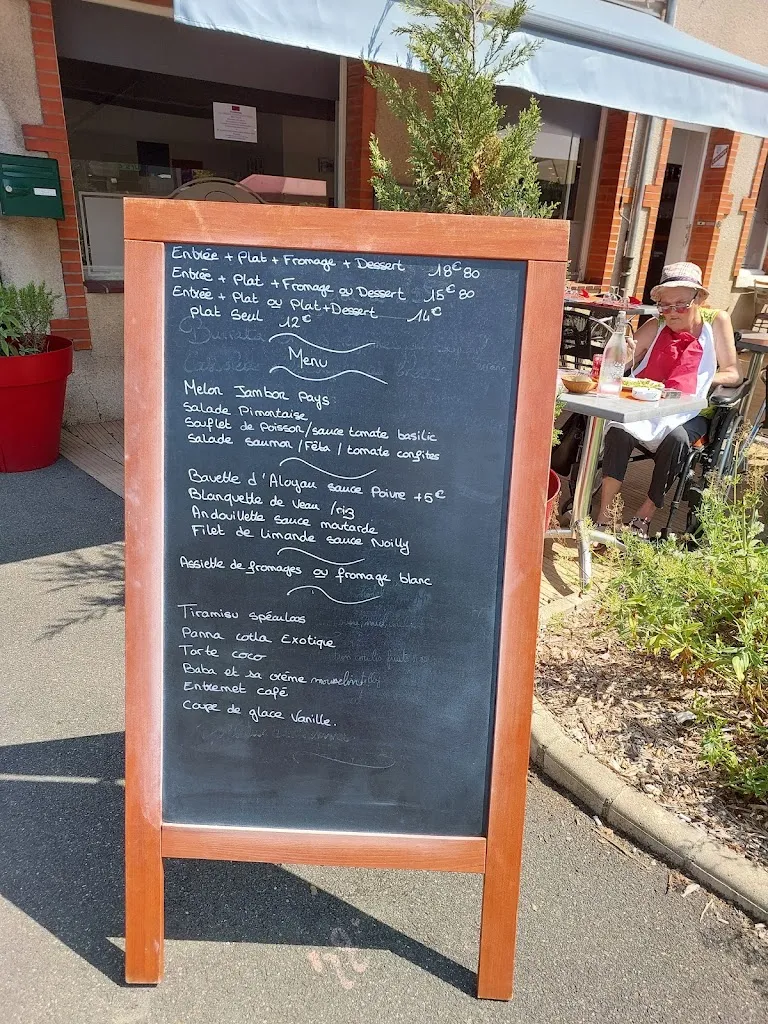 Entrée + Plat + Fromage + Dessert 18€80
Entrée + Plat + Fromage ou Dessert 15€80
Entrée + Plat ou Plat + Dessert 14€
plat Seul 12€
Menu
Melon Jambon Pays
Salade Pimontaise
Souflet de Poisson / sauce tomate basilic
Salade saumon / Fêta / tomate confites
Bavette d'Aloyau sauce Poivre +5€
Blanquette de Veau / riz
Andouillette sauce moutarde
Filet de limande sauce Noilly
Assiette de fromages ou fromage blanc
Tiramisu spéculoos
Panna cotta Exotique
Tarte coco
Baba et sa crème
Entremet café
Coupe de glace Vanille.